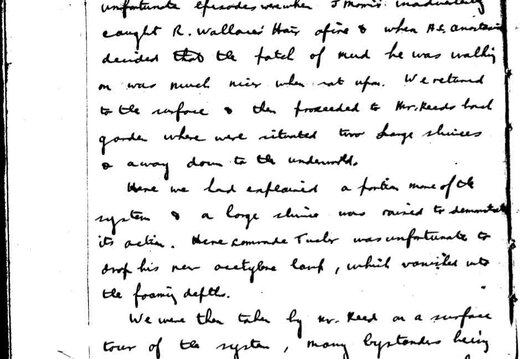 unfortunate episodes was when J Morris inadvertently
caught R. Wallace's Hair afire & when A.S.
decided that the patch of mud he was walking
on was much nicer when sat upon. We returned
to the surface & then proceeded to Mr. Reeds back
garden where were situated two large sluices
& away down to the underworld.
Here we had explained a portion more of the
system & a large sluice was raised to demonstrate
its action. Here comrade Tusler was unfortunate to
drop his new acetylene lamp, which vanished into
the foaming depths.
We were then taken by Mr. Reed on a surface
tour of the system, many bystanders being